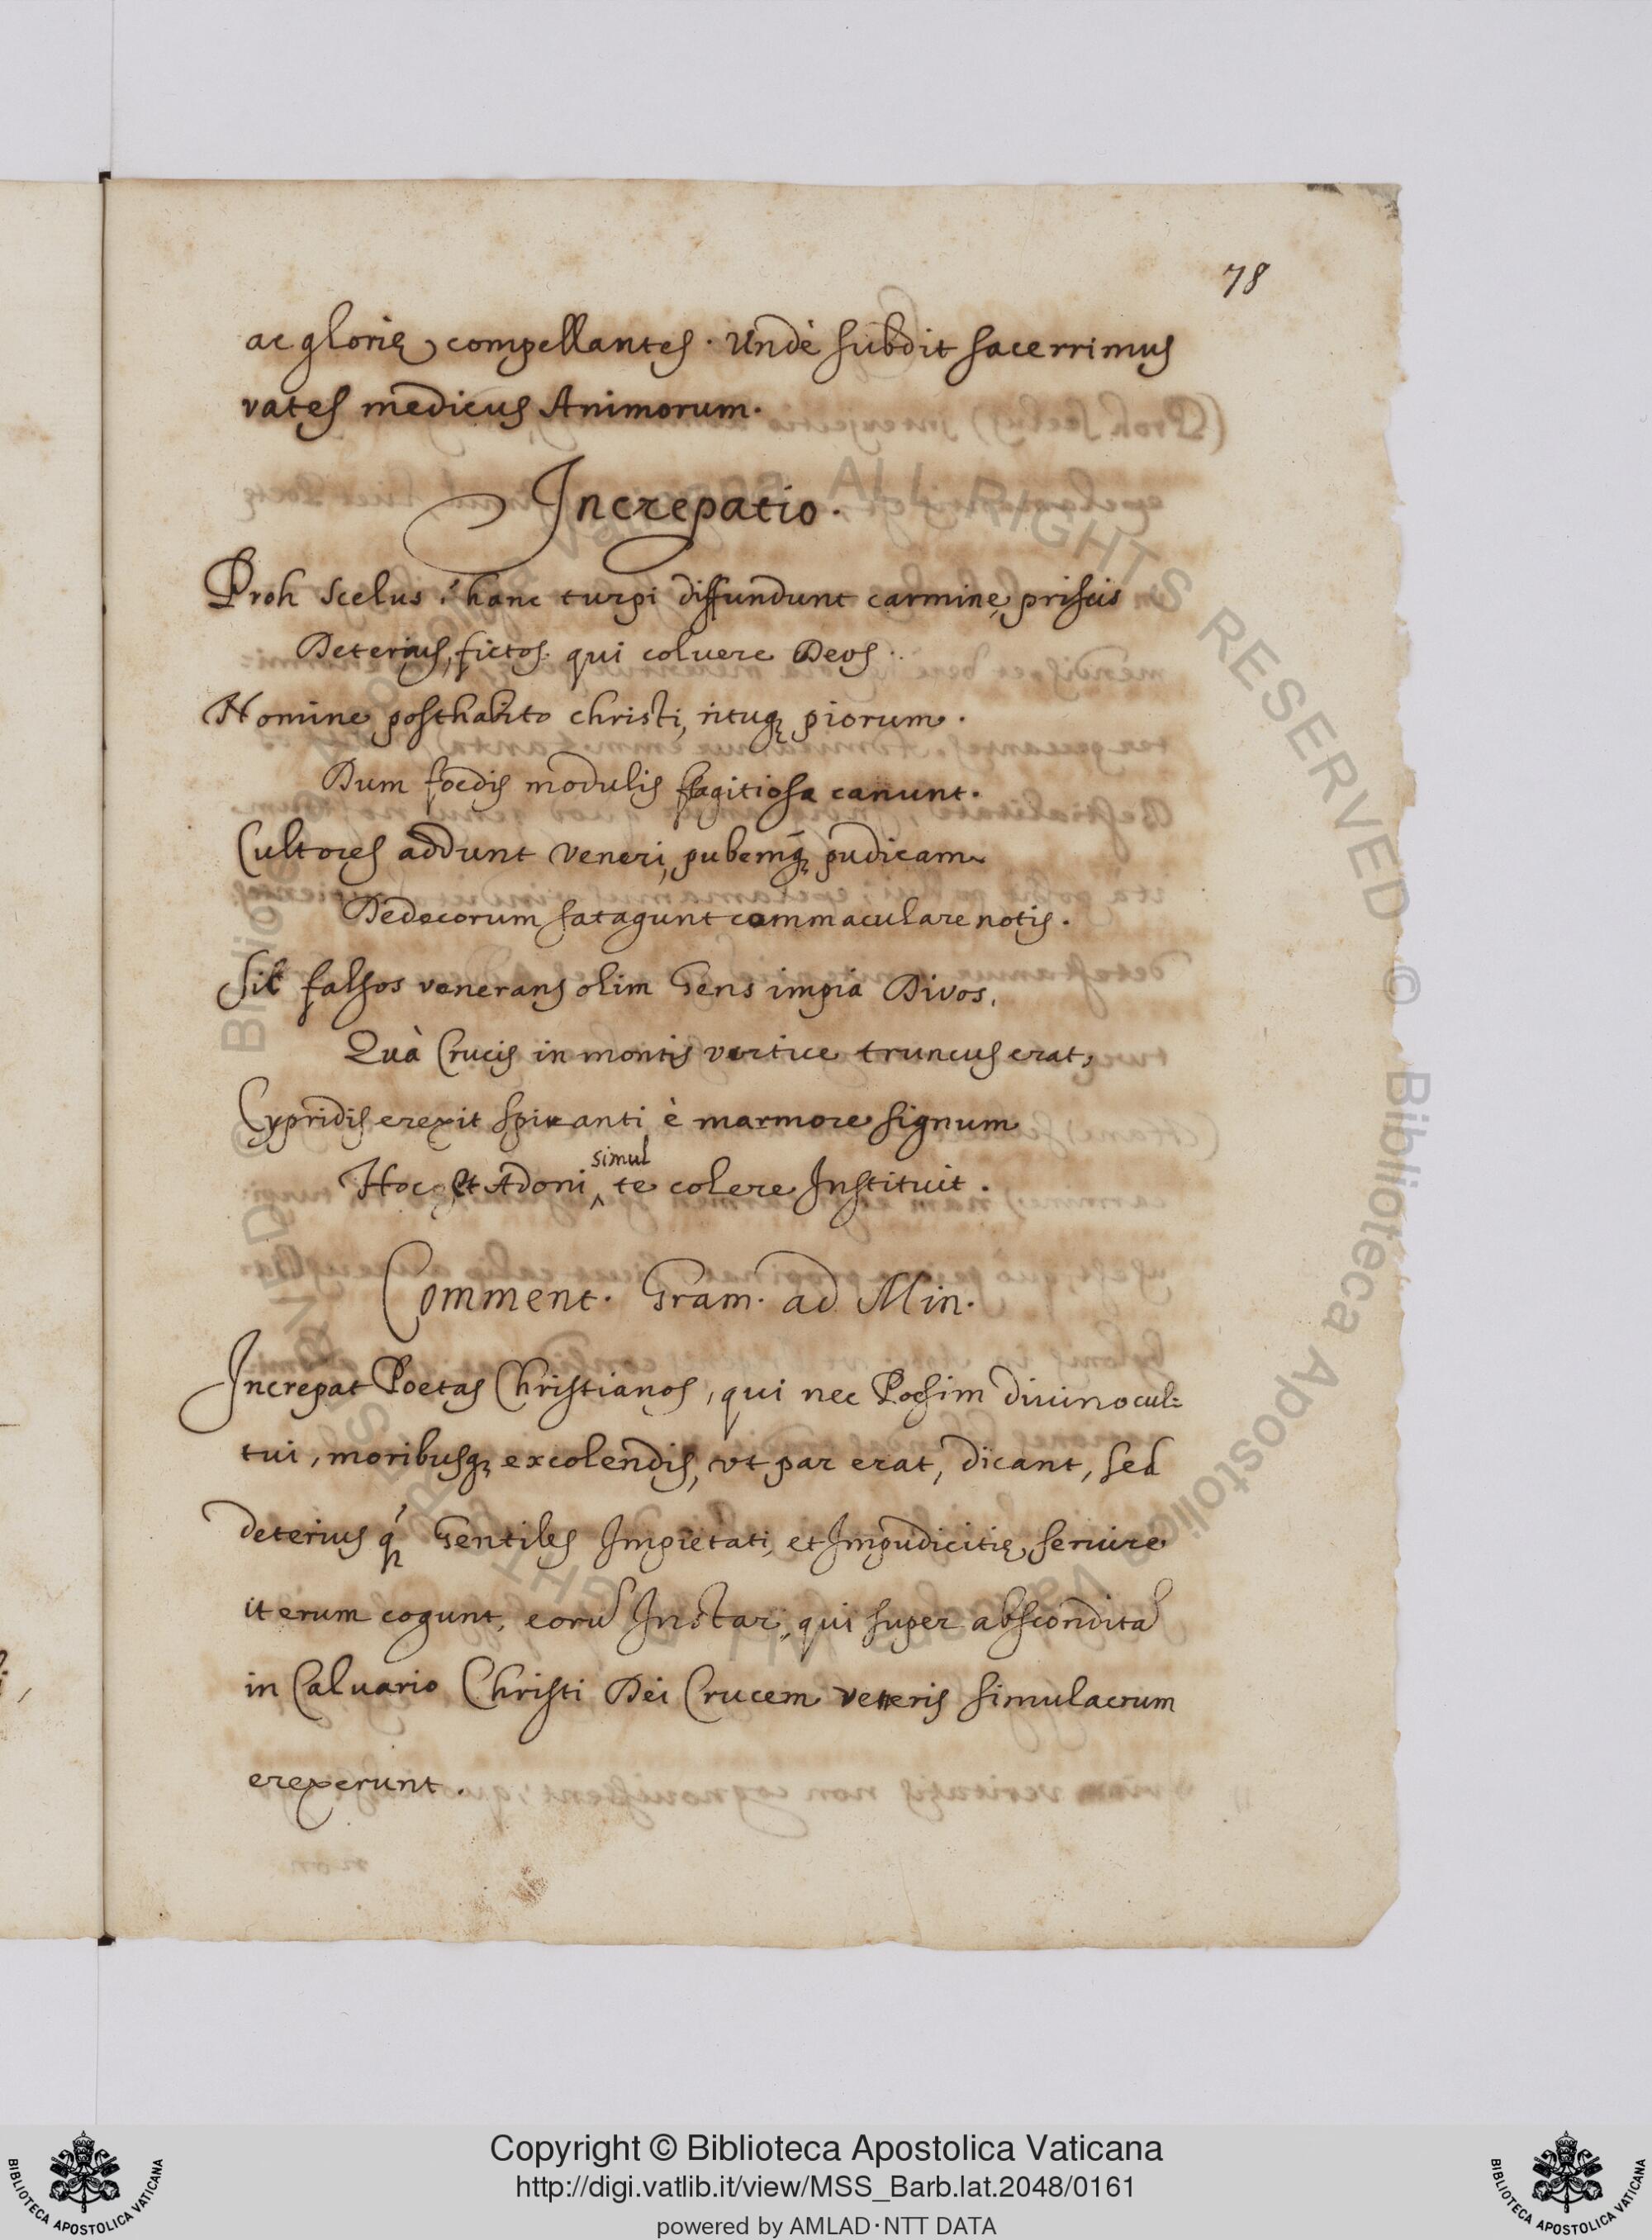 78
ac glorię compellantes. Undè subdit sacerrimus
vates medicus Animorum.
Increpatio.
Proh scelus! hanc turpi diffundunt carmine, priscis
Deterius, fictos qui coluere Deos.
Nomine posthabito christi, rituq; piorum.
Dum foedis modulis flagitiosa canunt.
Cultores addunt Veneri, pubemq; pudicam
Dedecorum satagunt commaculare notis.
Sic falsos venerans olim Gens impia Divos,
Quà Crucis in montis vertice truncus erat,
Cypridis erexit spiranti è marmore signum
Hoc et Adoni simul te colere Instituit.
Comment. Gram. ad Min.
Increpat Poetas Christianos, qui nec Poesim diuino cul=
tui, moribusq; excolendis, vt par erat, dicant, sed
deterius q Gentiles Impietati, et Impudicitię seruire
iterum cogunt, eorū Instar, qui super absconditā
in Caluario Christi Dei Crucem veneris simulacrum
erexerunt.
© Biblioteca Apostolica Vaticana ALL RIGHTS RESERVED
Copyright © Biblioteca Apostolica Vaticana
http://digi.vatlib.it/view/MSS_Barb.lat.2048/0161
powered by AMLAD·NTT DATA
BIBLIOTECA APOSTOLICA VATICANA
BIBLIOTECA APOSTOLICA VATICANA